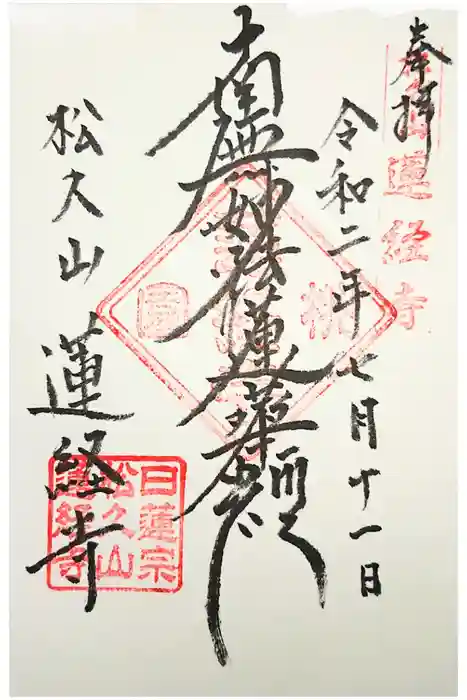 奉拝
蓮経寺
令和二年七月十一日
南無妙法蓮華経
松久山 蓮経寺
日蓮宗
松久山
蓮経寺